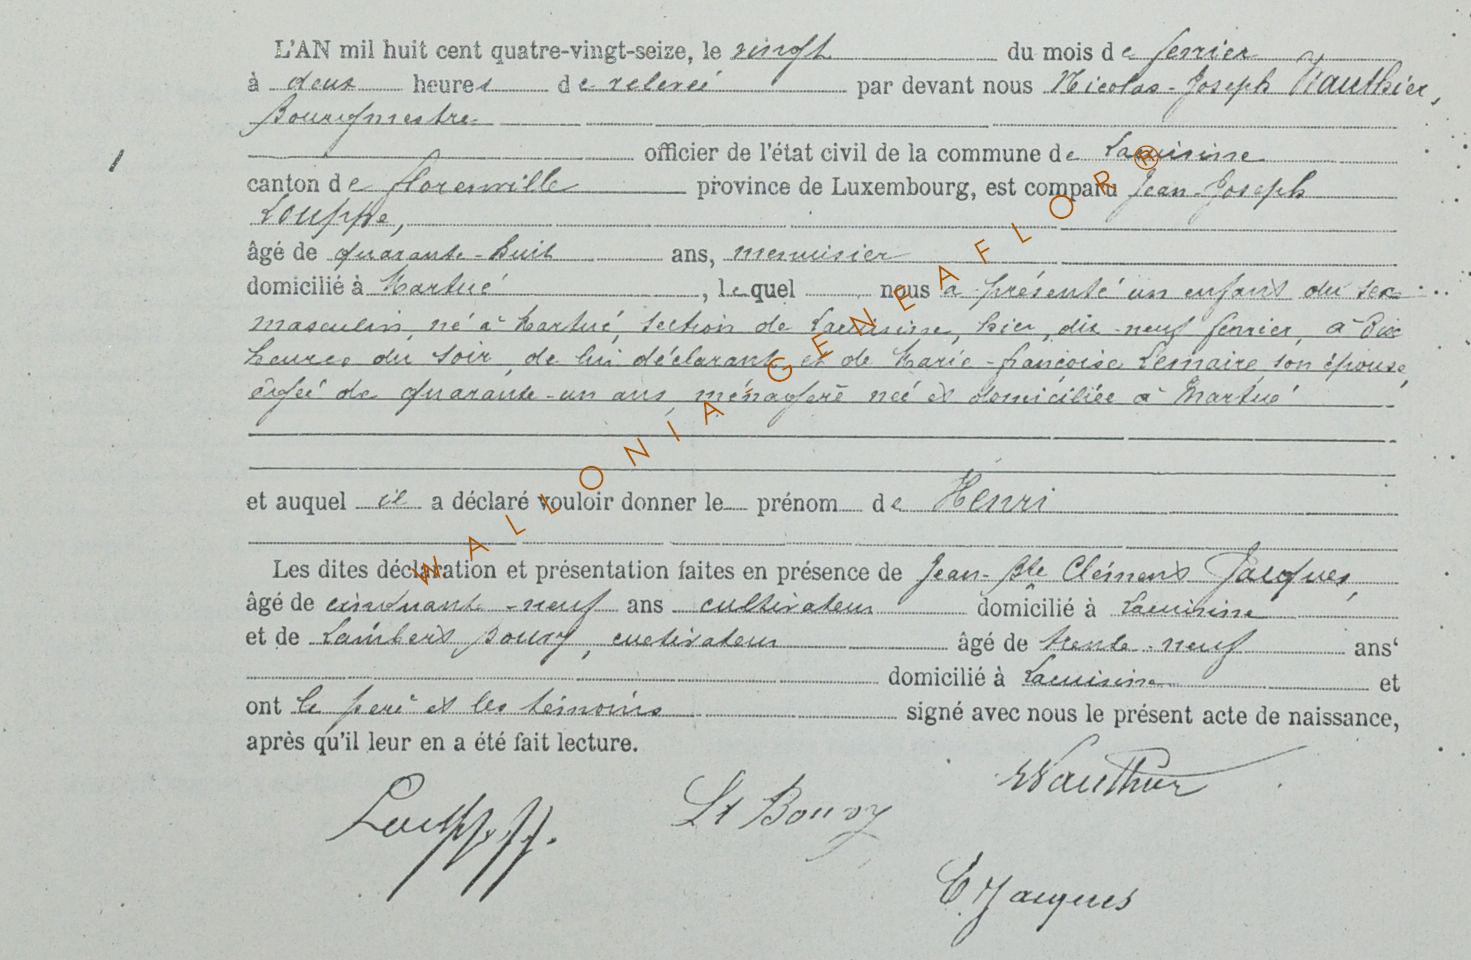 L'AN mil huit cent quatre-vingt-seize, le vingt du mois de fevrier
à deux heures de relevée par devant nous Nicolas-Joseph Wauthier,
Bourgmestre
officier de l'état civil de la commune de Lacuisine
canton de florenville province de Luxembourg, est comparu Jean-Joseph
Louppe,
âgé de quarante-huit ans, menuisier
domicilié à Martué, lequel nous a présenté un enfant du sexe
masculin, né à Martué, section de Lacuisine, hier, dix-neuf fevrier, à dix
heures du soir, de lui déclarant et de Marie-françoise Lemaire son épouse,
âgée de quarante-un ans, ménagere née et domiciliée à Martué
et auquel il a déclaré vouloir donner le prénom de Henri
Les dites déclaration et présentation faites en présence de Jean-Bte Clément Jacques,
âgé de cinquante-neuf ans cultivateur domicilié à Lacuisine
et de Lambert Bouvy, cultivateur âgé de trente-neuf ans
domicilié à Lacuisine et
ont le pere et les témoins signé avec nous le présent acte de naissance,
après qu'il leur en a été fait lecture.
Wauthier
Louppe JJ.
Lt Bouvy
C. Jacques
WALLONIA-GENEAFLOR®